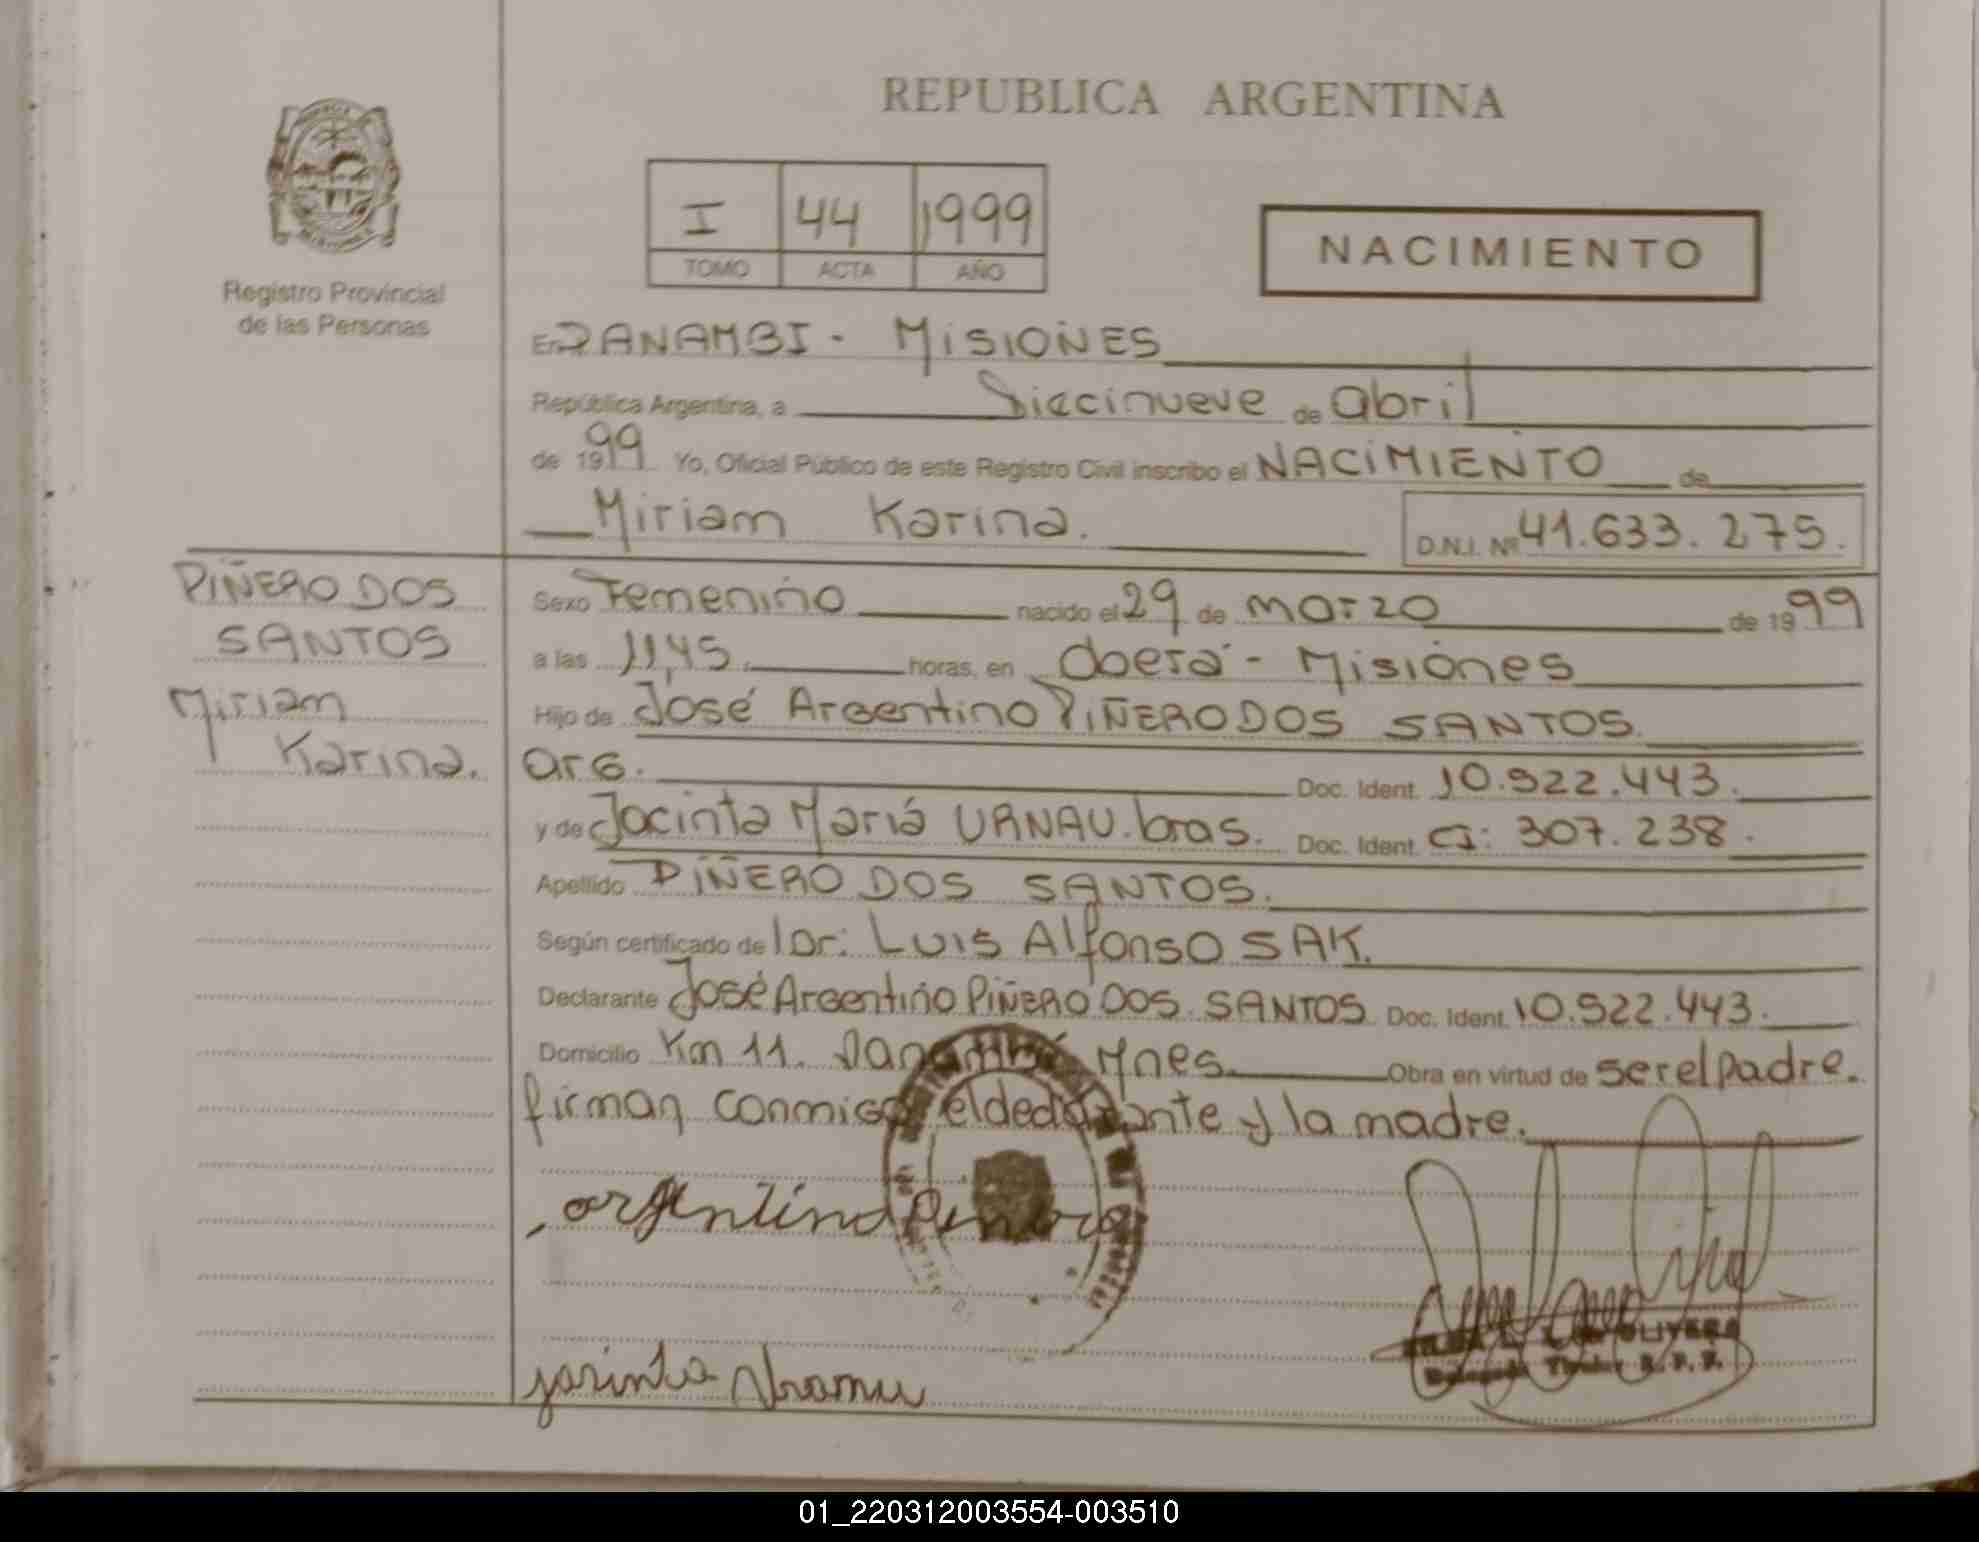 REPUBLICA ARGENTINA
I 44 1999
TOMO ACTA AÑO
NACIMIENTO
Registro Provincial
de las Personas
En PANAMBI - MISIONES
República Argentina, a Diecinueve de abril
de 1999 Yo, Oficial Público de este Registro Civil inscribo el NACIMIENTO de
Miriam Karina.
D.N.I. Nº 41.633.275.
PIÑERO DOS
SANTOS
Miriam
Karina.
Sexo Femenino nacido el 29 de marzo de 1999
a las 11,45 horas, en Oberá - Misiones
Hijo de José Argentino PIÑERO DOS SANTOS.
arg. Doc. Ident. 10.922.443.
y de Jacinta María URNAU. bras. Doc. Ident. CI: 307.238.
Apellido PIÑERO DOS SANTOS.
Según certificado del Dr: Luis Alfonso SAK.
Declarante José Argentino PIÑERO DOS SANTOS Doc. Ident. 10.922.443.
Domicilio Km 11. Panambí Mnes. Obra en virtud de ser el padre.
firman conmigo el declarante y la madre.
argentino
OLIVERA
Titular R.P.P.
01_220312003554-003510